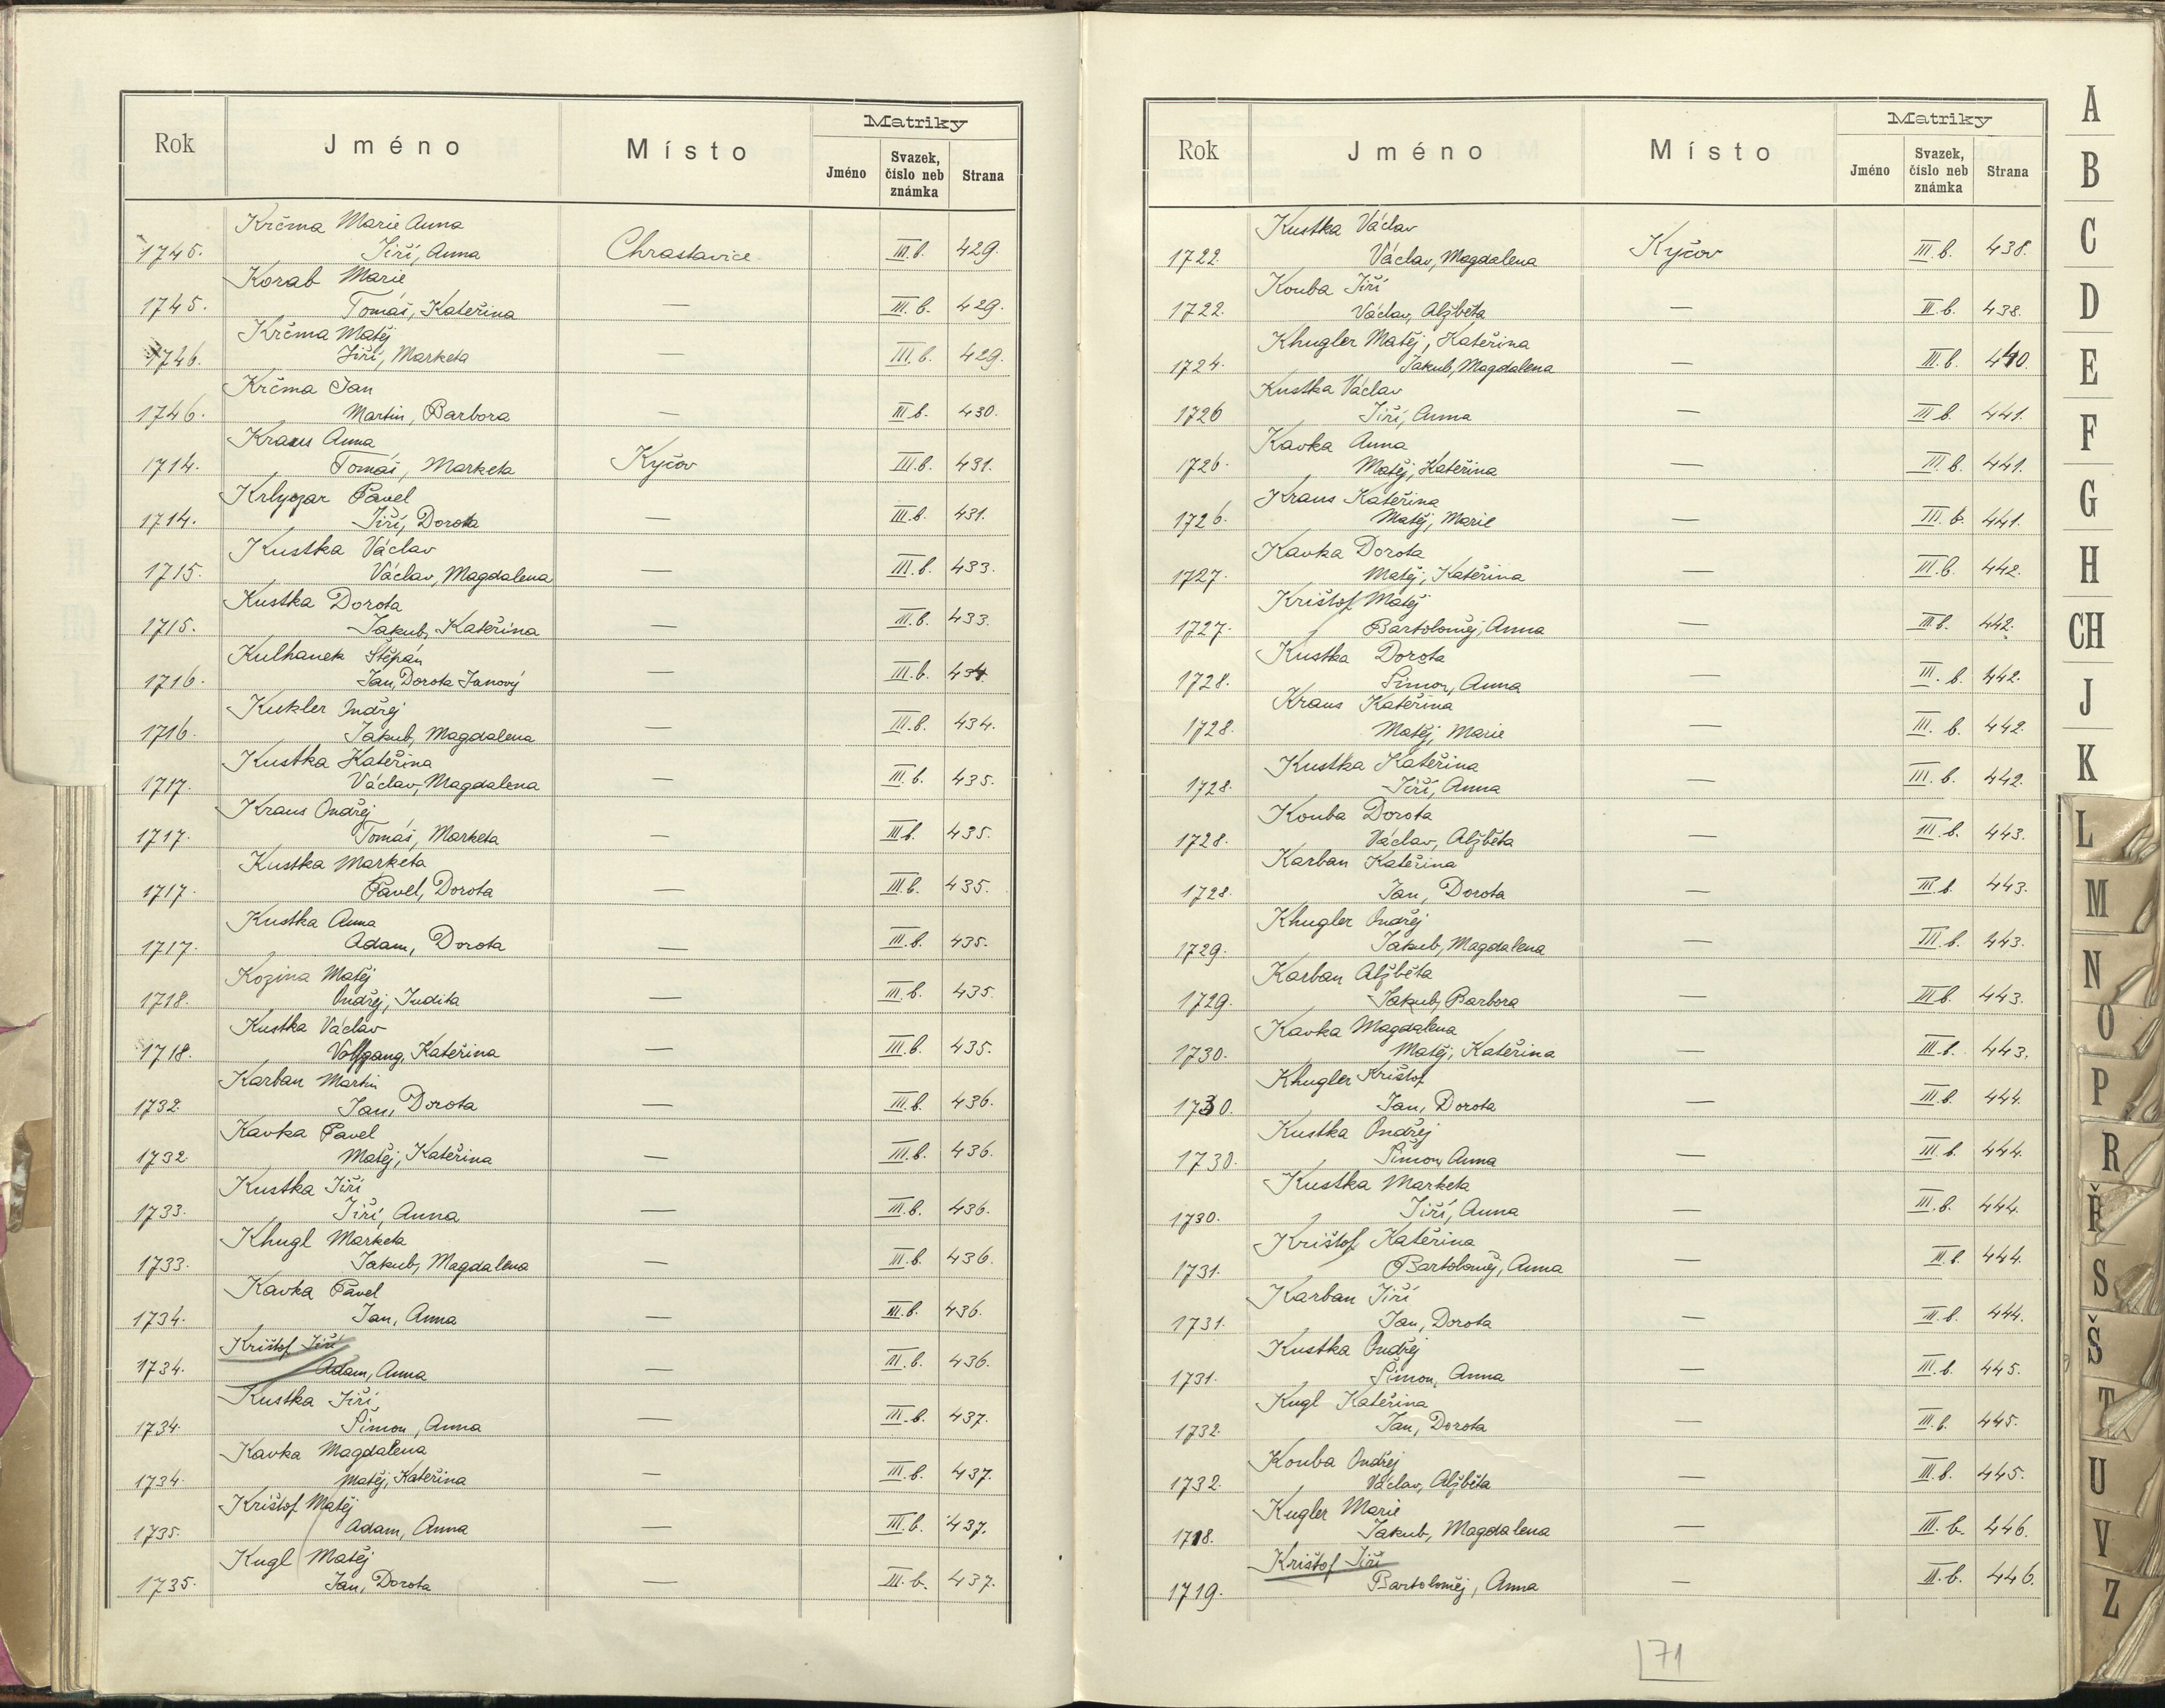 Matriky
Rok Jméno Místo Jméno Svazek, číslo neb známka Strana
Krčma Marie Anna
1745. Jiří, Anna Chrastavice III.b. 429.
Korab Marie
1745. Tomáš, Kateřina — III.b. 429.
Krčma Matěj
1746. Jiří, Marketa — III.b. 429.
Krčma Jan
1746. Martin, Barbora — III b. 430.
Kraus Anna
1714. Tomáš, Marketa Kyčov III.b. 431.
Pavel
1714. Jiří, Dorota — III.b. 431.
Kustka Václav
1715. Václav, Magdalena — III.b. 433.
Kustka Dorota
1715. Jakub, Kateřina — III.b. 433.
Kulhanek Štěpán
1716. Jan, Dorota Janový — III.b. 434.
Kukler Ondřej
1716. Jakub, Magdalena — III.b. 434.
Kustka Kateřina
1717. Václav, Magdalena — III.b. 435.
Kraus Ondřej
1717. Tomáš, Marketa — III b. 435.
Kustka Marketa
1717. Pavel, Dorota — III.b. 435.
Kustka Anna
1717. Adam, Dorota — III.b. 435.
Kozina Matěj
1718. Ondřej, Judita — III.b. 435.
Kustka Václav
1718. Volfgang, Kateřina — III.b. 435.
Karban Martin
1732. Jan, Dorota — III.b. 436.
Kavka Pavel
1732 Matěj, Kateřina — III.b. 436.
Kustka Jiří
1733. Jiří, Anna — III.b. 436.
Khugl Marketa
1733. Jakub, Magdalena — III.b. 436.
Kavka Pavel
1734. Jan, Anna — III.b. 436.
Krištof Jiří
1734. Adam, Anna — III.b. 436.
Kustka Jiří,
1734. Šimon, Anna — III.b. 437.
Kavka Magdalena
1734. Matěj, Kateřina — III.b. 437.
Krištof Matěj
1735. Adam, Anna — III.b. 437.
Kugl Matěj
1735. Jan, Dorota — III.b. 437.
Matriky
Rok Jméno Místo Jméno Svazek, číslo neb známka Strana
Kustka Václav
1722. Václav, Magdalena Kyčov III.b. 438.
Kouba Jiří
1722. Václav, Alžběta — III.b. 438.
Khugler Matěj, Kateřina
1724. Jakub, Magdalena — III.b. 440.
Kustka Václav
1726 Jiří, Anna — III.b. 441.
Kavka Anna
1726. Matěj, Kateřina — III.b. 441.
Kraus Kateřina
1726. Matěj, Marie — III.b. 441.
Kavka Dorota
1727. Matěj, Kateřina — III.b. 442.
Krištof Matěj
1727. Bartoloměj, Anna — III.b. 442.
Kustka Dorota
1728. Šimon, Anna — III.b. 442.
Kraus Kateřina
1728. Matěj, Marie — III.b. 442.
Kustka Kateřina
1728. Jiří, Anna — III.b. 442.
Kouba Dorota
1728. Václav, Alžběta — III.b. 443.
Karban Kateřina
1728. Jan, Dorota — III.b. 443.
Khugler Ondřej
1729. Jakub, Magdalena — III.b. 443.
Karban Alžběta
1729. Jakub, Barbora — III b. 443.
Kavka Magdalena
1730. Matěj, Kateřina — III.b. 443.
Khugler Krištof
1730. Jan, Dorota — III.b. 444.
Kustka Ondřej
1730. Šimon, Anna — III.b. 444.
Kustka Marketa
1730. Jiří, Anna — III.b. 444.
Krištof Kateřina
1731. Bartoloměj, Anna — III.b. 444.
Karban Jiří
1731. Jan, Dorota — III.b. 444.
Kustka Ondřej
1731. Šimon, Anna — III.b. 445.
Kugl Kateřina
1732. Jan, Dorota — III.b. 445.
Kouba Ondřej
1732. Václav, Alžběta — III.b. 445.
Kugler Marie
1718. Jakub, Magdalena — III.b. 446.
Krištof Jiří
1719. Bartoloměj, Anna — III.b. 446.
71
A
B
C
D
E
F
G
H
CH
J
K
L
M
N
O
P
R
Ř
S
Š
T
U
V
Z